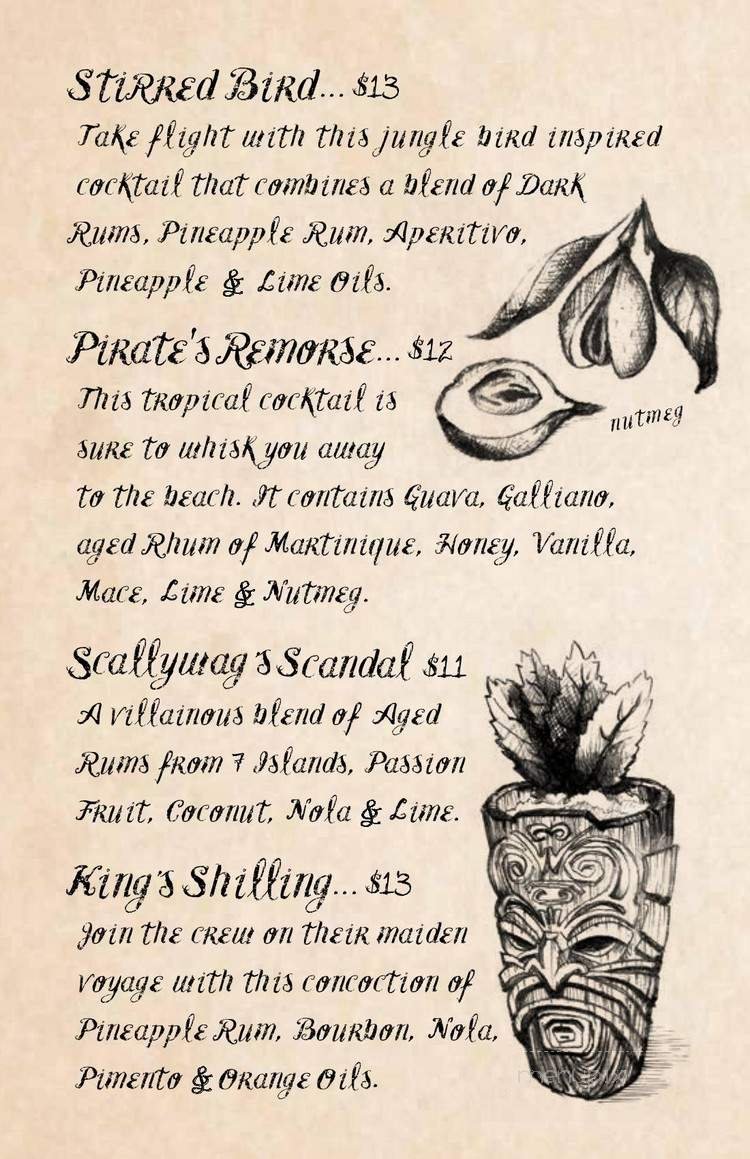 Stirred Bird... $13
Take flight with this jungle bird inspired
cocktail that combines a blend of Dark
Rums, Pineapple Rum, Aperitivo,
Pineapple & Lime Oils.
Pirate's Remorse... $12
This tropical cocktail is
sure to whisk you away
to the beach. It contains Guava, Galliano,
aged Rhum of Martinique, Honey, Vanilla,
Mace, Lime & Nutmeg.
nutmeg
Scallywag's Scandal $11
A villainous blend of Aged
Rums from 7 Islands, Passion
Fruit, Coconut, Nola & Lime.
King's Shilling... $13
Join the crew on their maiden
voyage with this concoction of
Pineapple Rum, Bourbon, Nola,
Pimento & Orange Oils.